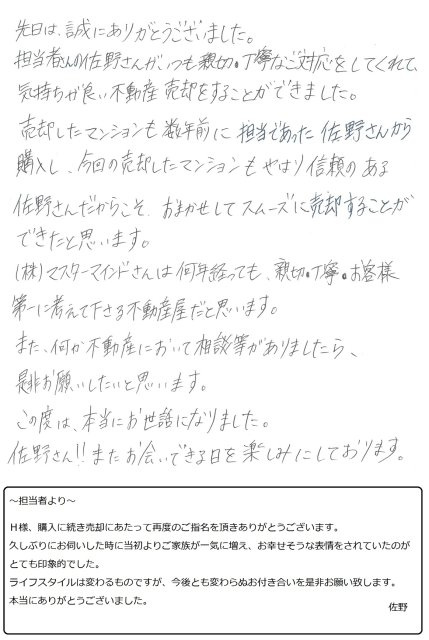 先日は、誠にありがとうございました。
担当者さんの佐野さんが、いつも親切・丁寧なご対応をしてくれて、
気持ちが良い不動産売却をすることができました。
売却したマンションも数年前に担当であった佐野さんから
購入し、今回の売却したマンションもやはり信頼のある
佐野さんだからこそ、おまかせしてスムーズに売却することが
できたと思います。
(株)マスターマインドさんは何年経っても、親切・丁寧・お客様
第一に考えて下さる不動産屋だと思います。
また、何か不動産において相談等がありましたら、
是非お願いしたいと思います。
この度は、本当にお世話になりました。
佐野さん!!またお会いできる日を楽しみにしております。
～担当者より～
H様、購入に続き売却にあたって再度のご指名を頂きありがとうございます。
久しぶりにお伺いした時に当初よりご家族が一気に増え、お幸せそうな表情をされていたのが
とても印象的でした。
ライフスタイルは変わるものですが、今後とも変わらぬお付き合いを是非お願い致します。
本当にありがとうございました。
佐野